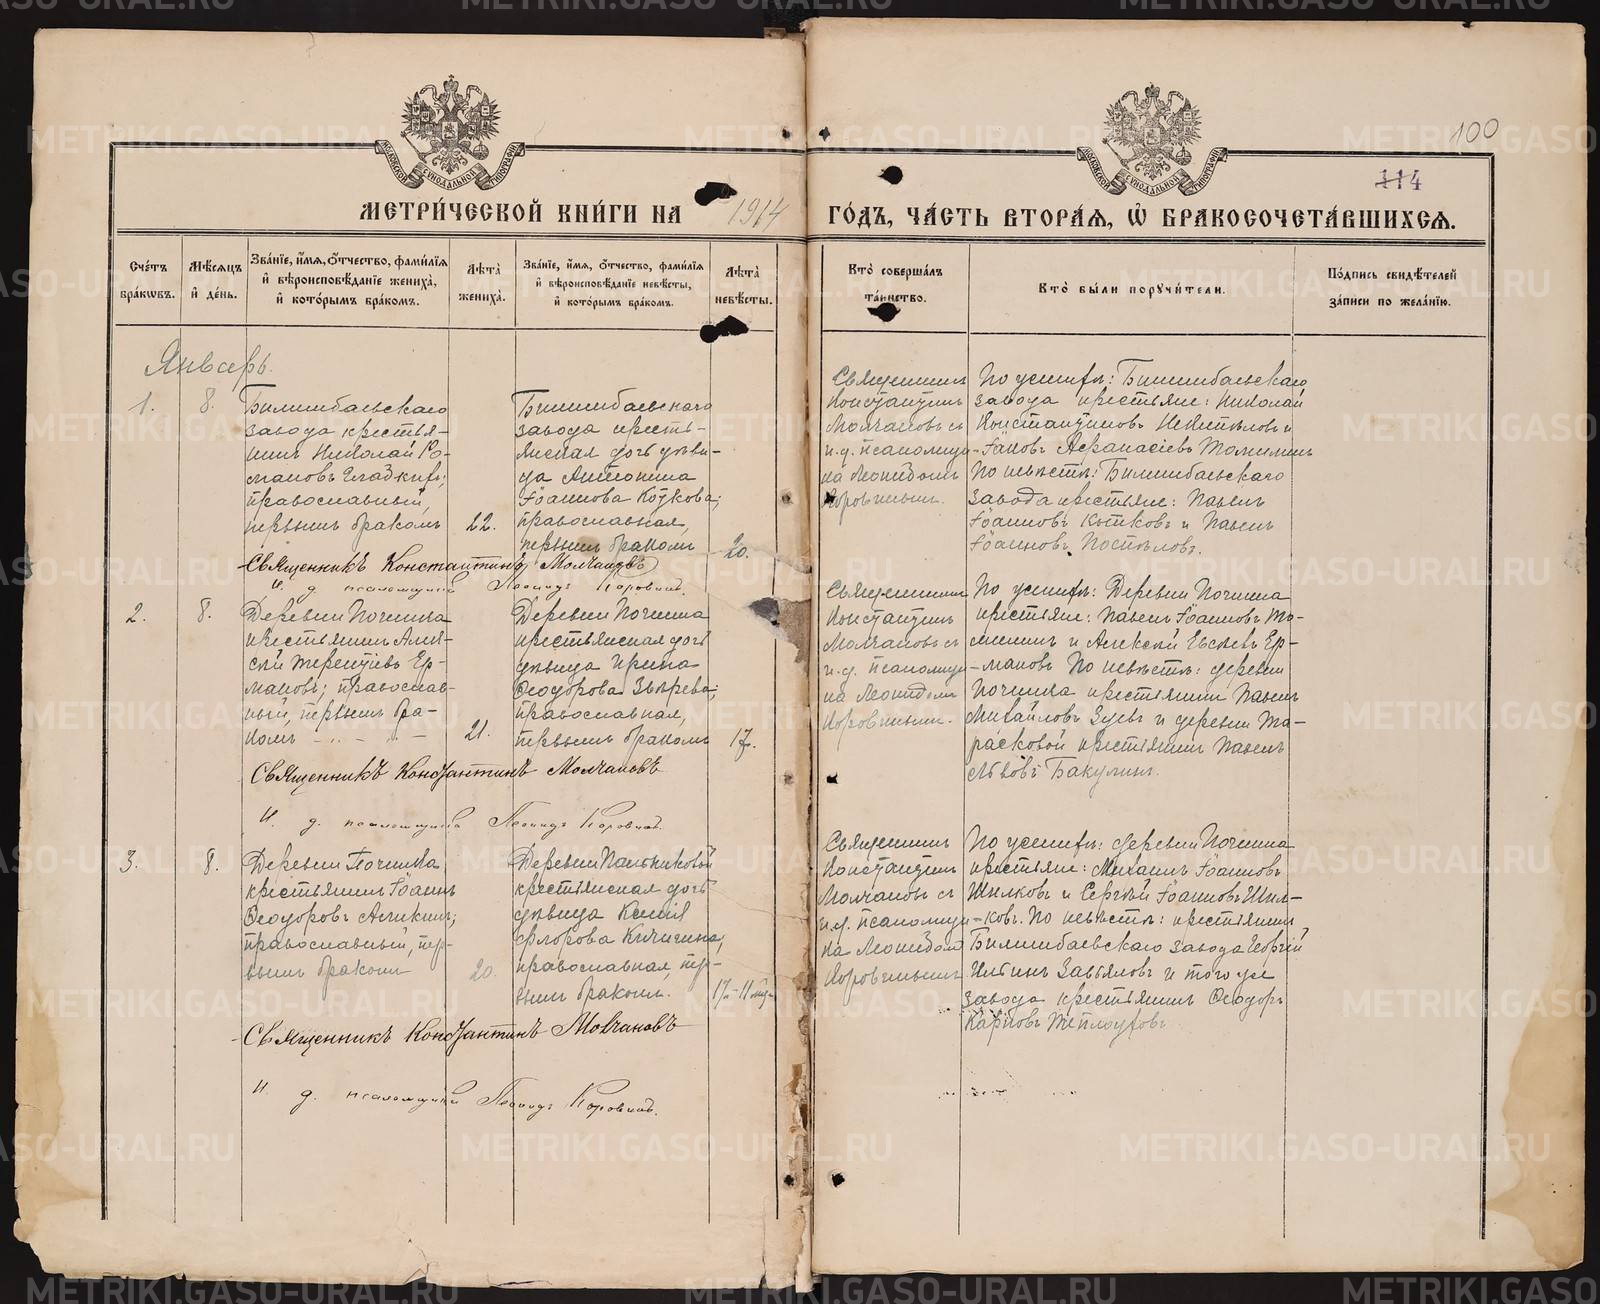 100
114
МОСКОВСКОЙ СѴНОДАЛЬНОЙ ТИПОГРАФІИ
МОСКОВСКОЙ СѴНОДАЛЬНОЙ ТИПОГРАФІИ
МЕТРИ́ЧЕСКОЙ КНИ́ГИ НА 1914 ГО́ДЪ, ЧА́СТЬ ВТОРА́Я, Ѽ БРАКОСОЧЕТА́ВШИХСЯ.
Сче́тъ
бра́кѡвъ.
Мѣ́сяцъ
и҆ де́нь.
Зва́нїе, и҆́мя, ѻ҆́тчество, фами́лїя
и҆ вѣроисповѣ́данїе жениха̀,
и҆ кото́рымъ бра́комъ.
Лѣ́та̀
жениха̀.
Зва́нїе, и҆́мя, ѻ҆́тчество, фами́лїя
и҆ вѣроисповѣ́данїе невѣ́сты,
и҆ кото́рымъ бра́комъ.
Лѣ́та̀
невѣ́сты.
Кто̀ соверша́лъ
та́инство.
Кто̀ бы́ли порꙋчи́тели.
По́дпись свидѣ́телей
за́писи по жела́нїю.
Январь.
1.
8.
Билимбаевскаго
завода крестья-
нинъ Николай Ро-
мановъ Гладкихъ;
православный,
первымъ бракомъ
22.
Билимбаевскаго
завода кресть-
янская дочь дѣви-
ца Антонина
Іоаннова Коткова;
православная,
первымъ бракомъ
20.
Священникъ
Константинъ
Молчановъ съ
и.д. псаломщи-
ка Леонидомъ
Коровинымъ.
По женихѣ: Билимбаевскаго
завода крестьяне: Николай
Константиновъ и
Іаковъ Афанасіевъ
По невѣстѣ: Билимбаевскаго
завода крестьяне: Павелъ
Іоанновъ и Павелъ
Іоанновъ Поспѣловъ.
Священникъ Константинъ Молчановъ
И. д. псаломщика Леонидъ Коровинъ.
2.
8.
Деревни Починка
крестьянинъ Алек-
сѣй Терентіевъ Ер-
маковъ; православ-
ный, первымъ бра-
комъ
21.
Деревни Починка
крестьянская дочь
дѣвица Ирина
Ѳеодорова Звѣрева;
православная,
первымъ бракомъ
17.
Священникъ
Константинъ
Молчановъ съ
и.д. псаломщи-
ка Леонидомъ
Коровинымъ.
По женихѣ: Деревни Починка
крестьяне: Павелъ Іоанновъ
и Алексѣй Евсѣевъ Ер-
маковъ По невѣстѣ: деревни
Починка крестьянинъ Павелъ
Михайловъ Зуевъ и деревни Та-
расковой крестьянинъ Павелъ
Львовъ Бакулинъ.
Священникъ Константинъ Молчановъ
И. д. псаломщика Леонидъ Коровинъ.
3.
8.
Деревни Починка
крестьянинъ Іоаннъ
Ѳеодоровъ Аликинъ;
православный, пер-
вымъ бракомъ
20.
Деревни
крестьянская дочь
дѣвица Ксенія
Флорова Кичигина,
православная, пер-
вымъ бракомъ.
17-11 мѣс.
Священникъ
Константинъ
Молчановъ съ
и.д. псаломщи-
ка Леонидомъ
Коровинымъ.
По женихѣ: деревни Починка
крестьяне: Михаилъ Іоанновъ
Шилковъ и Сергѣй Іоанновъ Шил-
ковъ. По невѣстѣ: крестьянинъ
Билимбаевскаго завода Георгій
Ильинъ Завьяловъ и того же
завода крестьянинъ Ѳеодоръ
Карповъ Теплоуховъ
Священникъ Константинъ Молчановъ
И. д. псаломщика Леонидъ Коровинъ.
METRIKI.GASO-URAL.RU